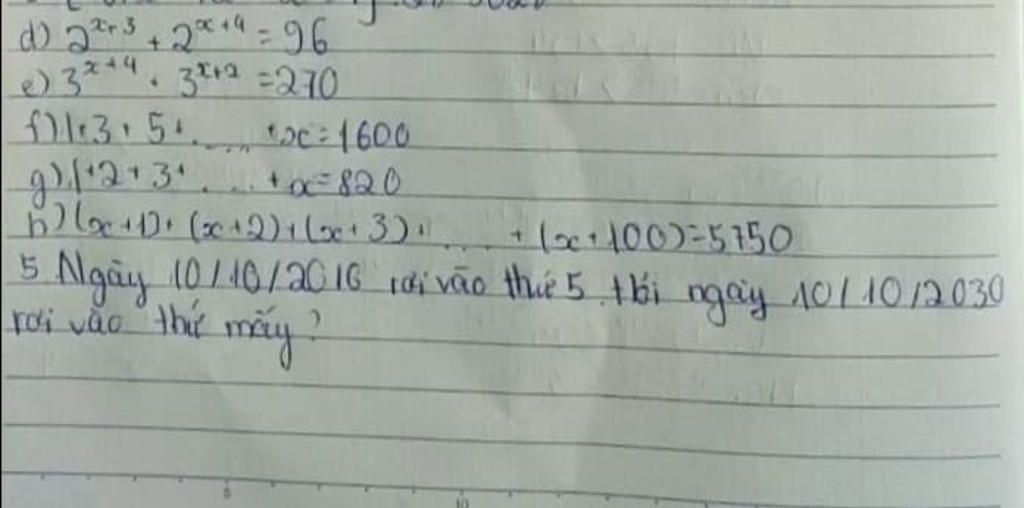 d) 2^{x+3} + 2^{x+4} = 96
e) 3^{x+4} . 3^{x+2} = 270
f) 1+3+5+.....+x=1600
g) 1+2+3+....+x=820
h) (x+1)+(x+2)+(x+3)+....+(x+100)=5750
5 Ngày 10/10/2016 rơi vào thứ 5. Hỏi ngày 10/10/2030
rơi vào thứ mấy?
8 10